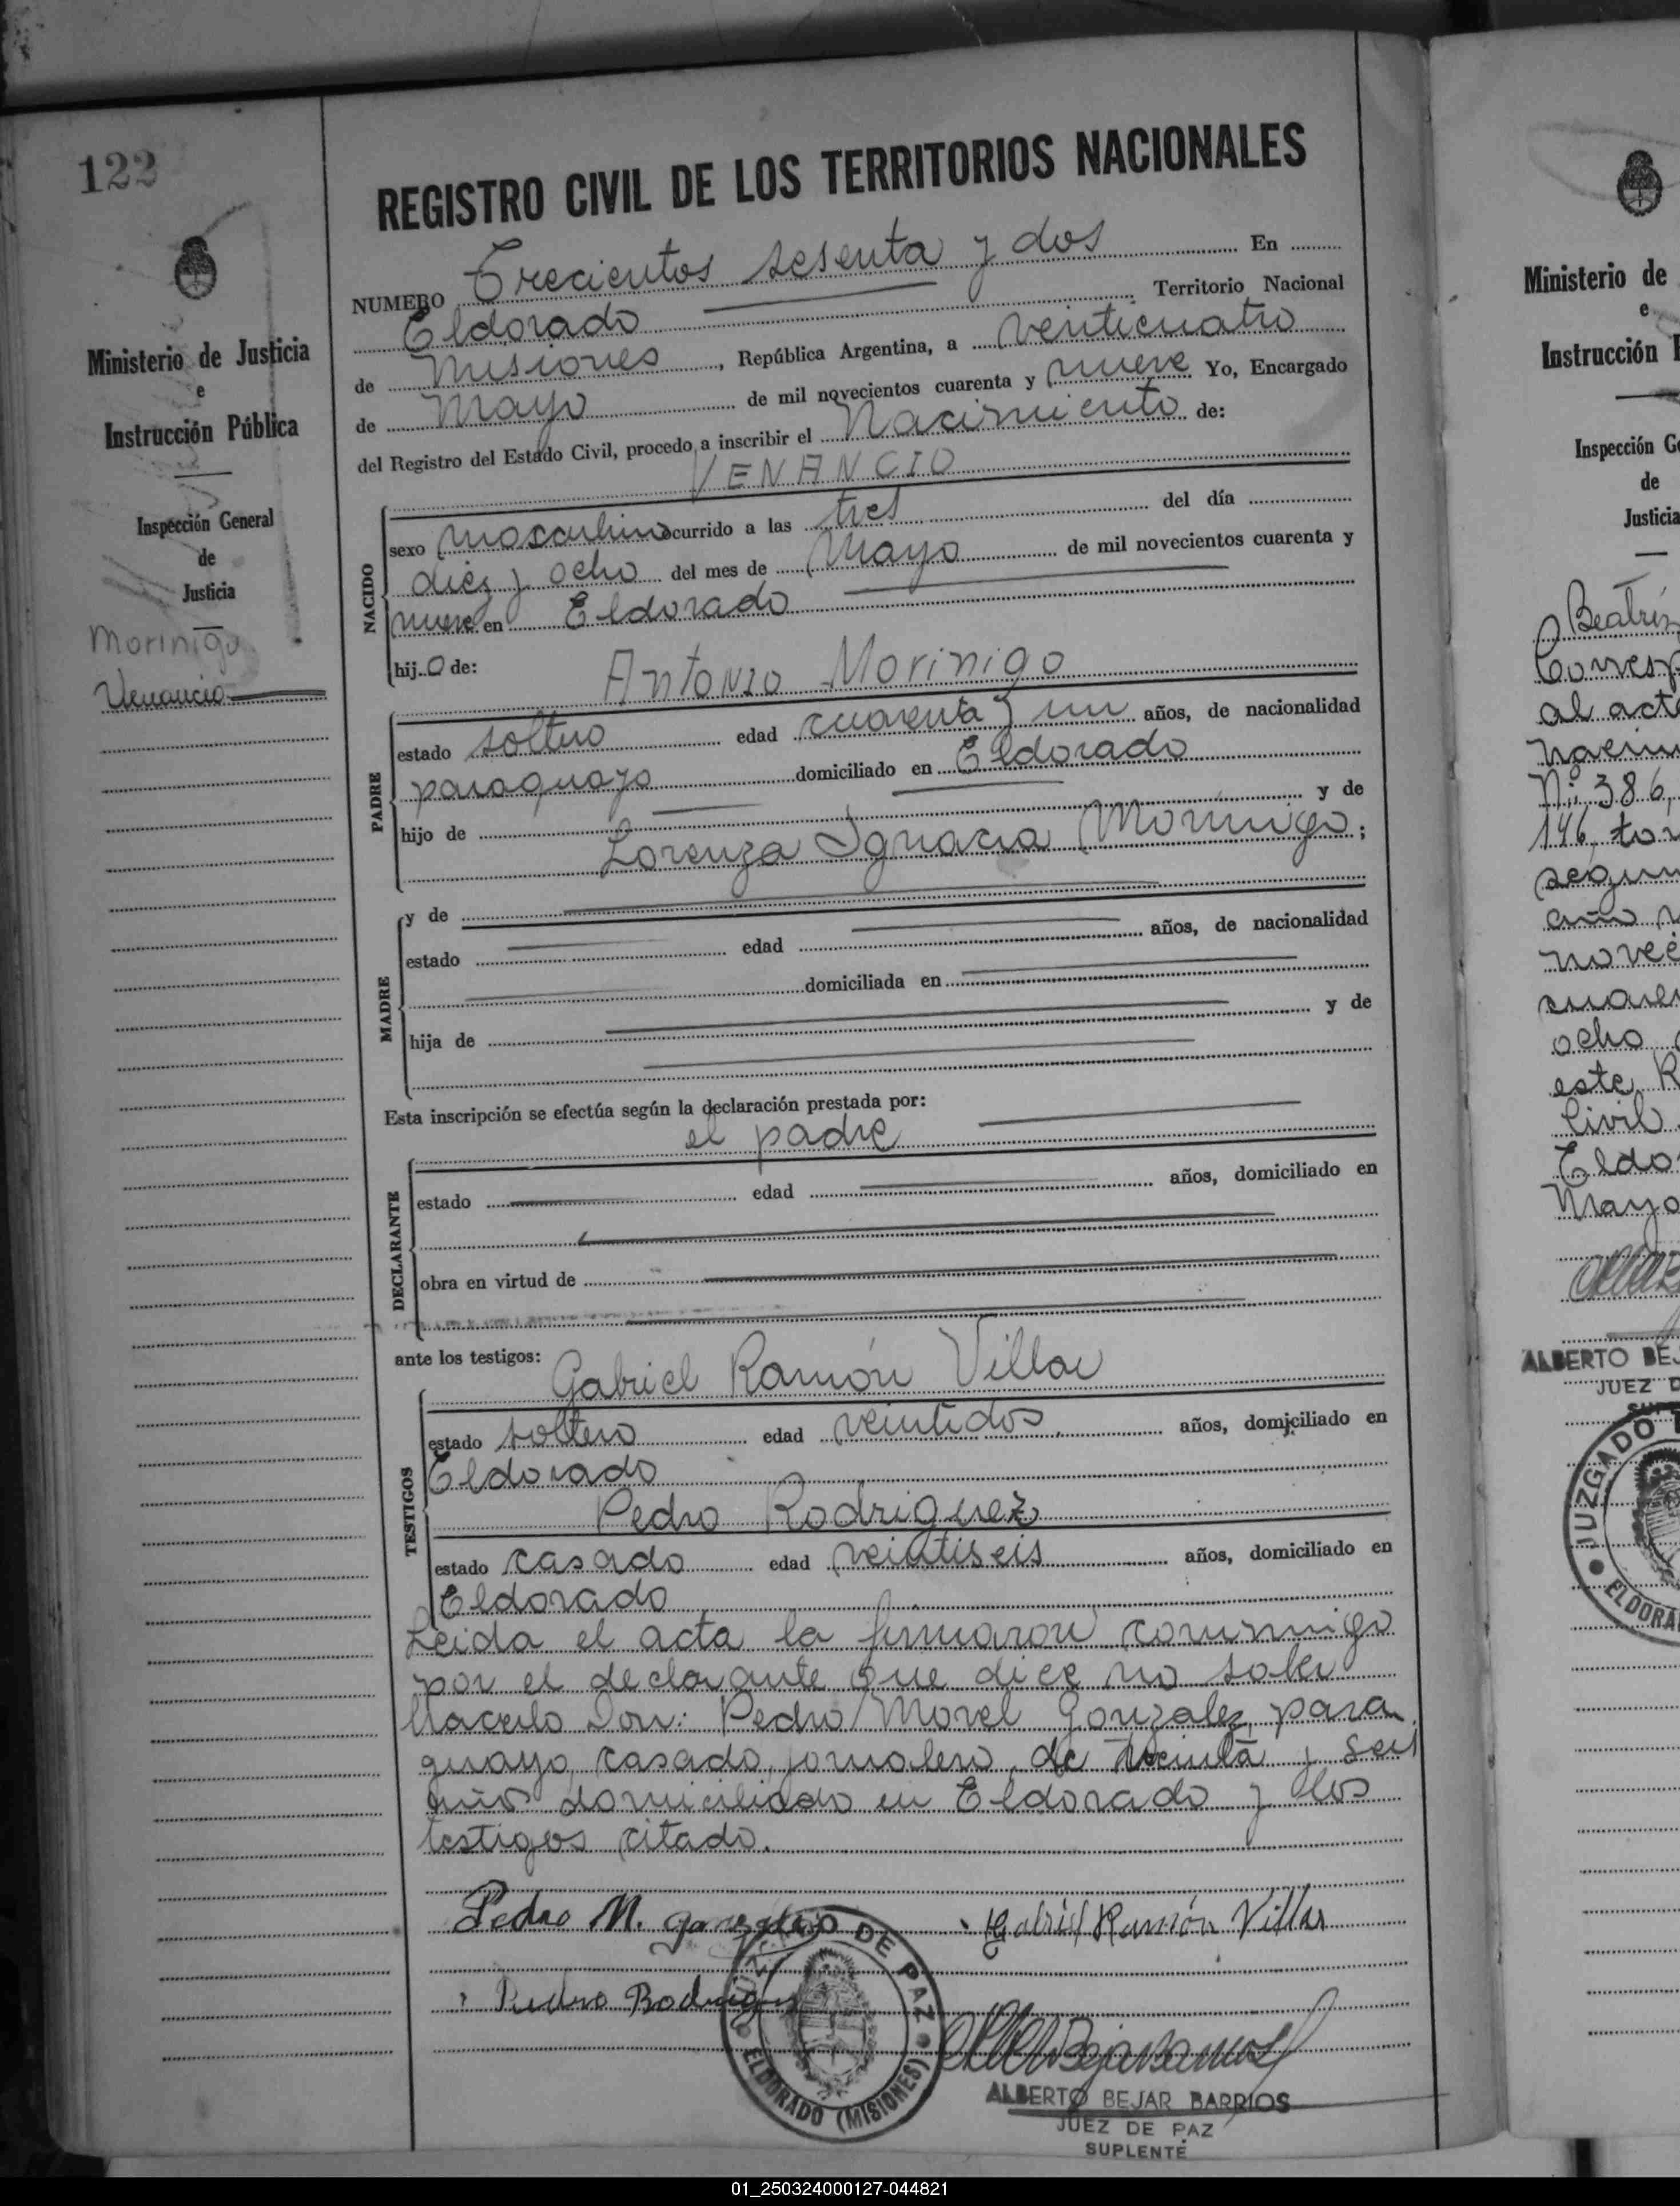 122
Ministerio de Justicia
e
Instrucción Pública
Inspección General
de
Justicia
Morinigo
Venancio
REGISTRO CIVIL DE LOS TERRITORIOS NACIONALES
NUMERO Trecientos sesenta y dos En
Eldorado Territorio Nacional
de Misiones, República Argentina, a venticuatro
de Mayo de mil novecientos cuarenta y nueve Yo, Encargado
del Registro del Estado Civil, procedo a inscribir el Nacimiento de:
VENANCIO
NACIDO
sexo masculino ocurrido a las tres del día
diez y ocho del mes de Mayo de mil novecientos cuarenta y
nueve en Eldorado
hijo de:
Antonio Morinigo
PADRE
estado soltero edad cuarenta y un años, de nacionalidad
paraguayo domiciliado en Eldorado
hijo de y de
Lorenza Ignacia Morinigo;
MADRE
y de
estado edad años, de nacionalidad
domiciliada en
hija de y de
Esta inscripción se efectúa según la declaración prestada por:
el padre
DECLARANTE
estado edad años, domiciliado en
obra en virtud de
ante los testigos:
Gabriel Ramón Villar
TESTIGOS
estado soltero edad veintidos años, domiciliado en
Eldorado
Pedro Rodriguez
estado casado edad veintiseis años, domiciliado en
Eldorado
Leida el acta la firmaron conmigo
por el declarante que dice no saber
hacerlo Don: Pedro Morel Gonzalez, para
guayo, casado, jornalero, de treinta y seis
años domiciliado en Eldorado y los
testigos citado.
Pedro M. Gonzalez Gabriel Ramón Villar
Pedro Rodriguez
JUZGADO DE PAZ
ELDORADO (MISIONES)
ALBERTO BEJAR BARRIOS
JUEZ DE PAZ
SUPLENTE
Ministerio de
e
Instrucción P
Inspección Ge
de
Justicia
Beatriz
Corresp
al acta
nacim
Nº 386,
146, to
segun
año
nove
cuaren
ocho
este R
Civil
Eldo
Mayo
ALBERTO BEJ
JUEZ D
JUZGADO
ELDORA
01_250324000127-044821